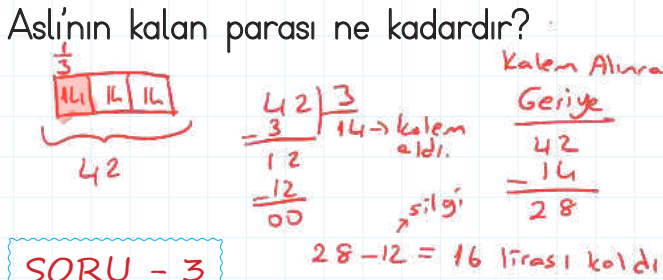 Aslı'nın kalan parası ne kadardır?
1/3
14 14 14
42
42 | 3
- 3 14 → kalem aldı.
12
- 12
00
Kalem Alınca
Geriye
42
- 14
28
silgi
28 - 12 = 16 lirası kaldı
SORU - 3